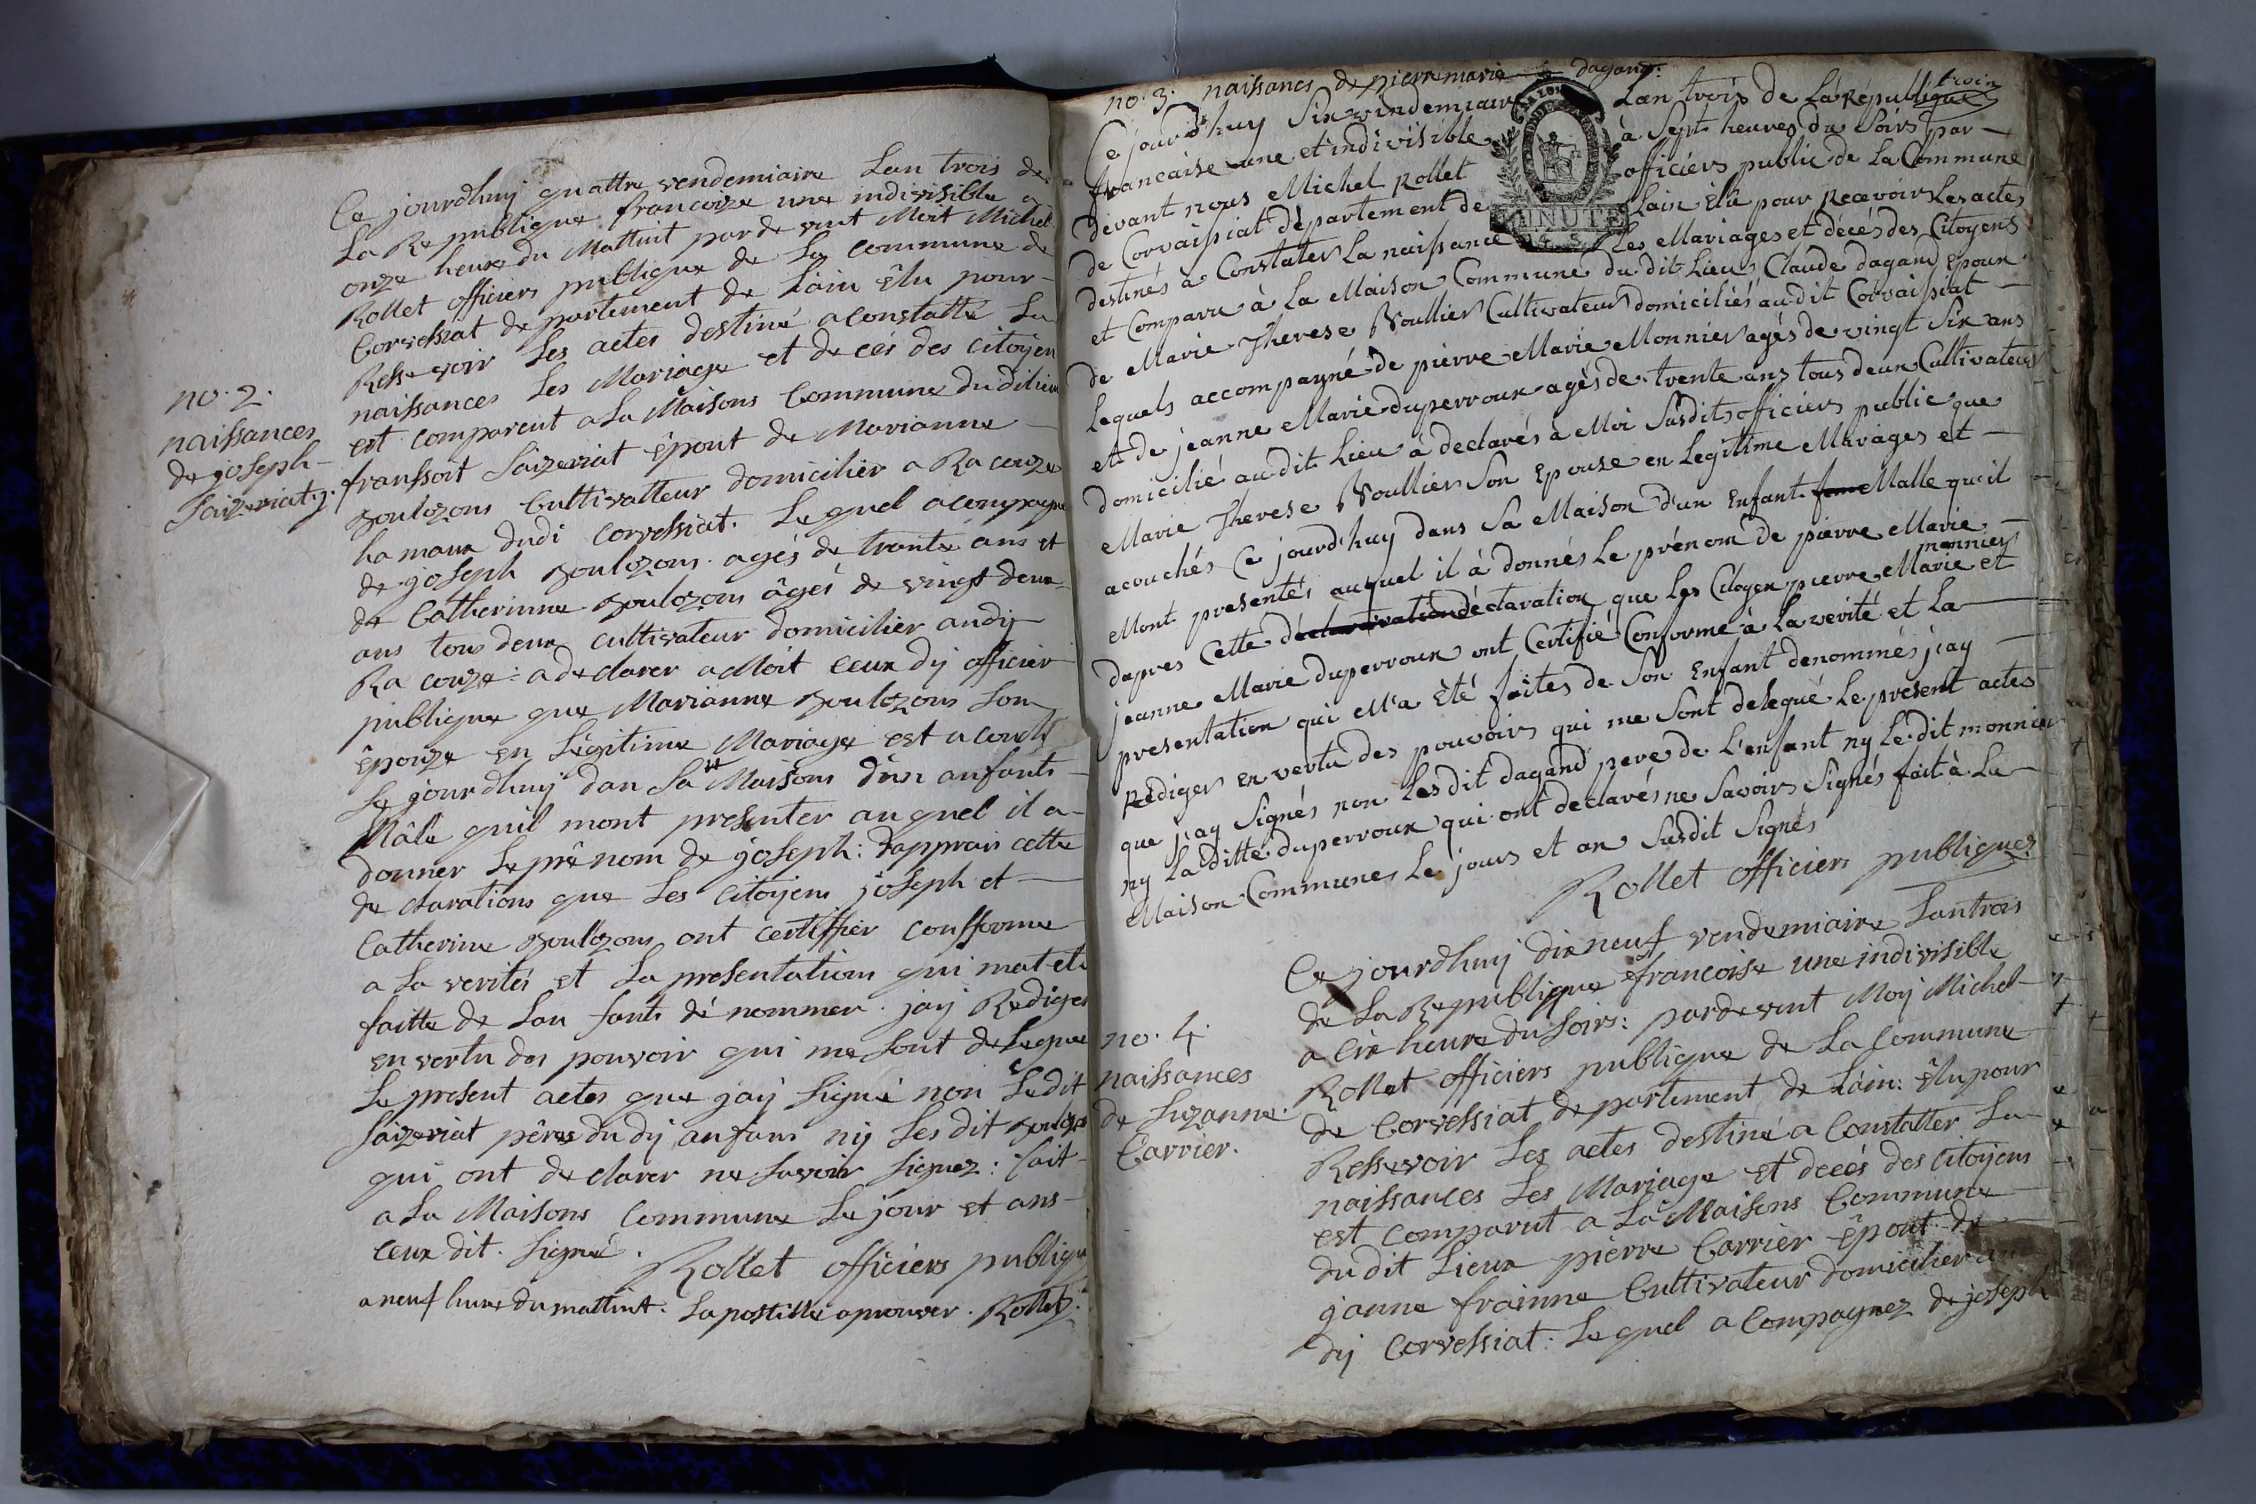 Ce jourdhuy quattre vendemiaire Lan trois de
La Republique francoize une indivisible a
onze heure du Mattint par de vant Moit Michel
Rollet officiers publique de La Commune de
Corvessiat de partement de Lain Êlu pour
Resse voir Les actes destiné a constatté La
naissances Les Mariage et de cés des citoyen
est comparent a La Maisons Commune du dilieu
no. 2.
naissances
de joseph
Saizeriat
franssoit Saizeriat êpout de Marianne
Cultivatteur domicilier a Ra couze
ha maux dudi Corvessiat. Le quel acompagne
de joseph agés de trante ans et
de Catherinne âgés de vingt deux
ans tous deux cultivateur domicilier audy
Ra couze: a de clarer a Moit ceux dy officier
publique que Marianne son
êpouze en Légitime Mariage est a couch
Le jourdhuy dan Sa Maisons d'un anfants
Mâle quil mont presenter au quel il a
donner Le prénom de joseph: dapprais cette
de clarations que Les Citoyens joseph et
Catherine ont certiffier confforme
a La verités et La presentations qui mat eté
faitte de Lan fants dé nommer. jay Rediger
en vertu des pouvoir qui me sont de Legue
Le present actes que jay signé non Le dit
Saizeriat pêres du dy anfans ny Les dit
qui ont de clarer ne Savoir signez: fait
a La Maisons Commune Le jour et ans
ceux dit. Signé.
Rollet officiers publique
a neuf heure du mattint. La postille aprouver. Rollet
no. 3. naissance de pierre marie dagand
Ce jourd'huy Six vendemiaire Lan trois de La Republique
francaise une et indivisible à Sept heures du Soirs par
divant nous Michel Rollet officiers public de La Commune
de Corvaissiat département de Lain Élû pour Recevoir Les actes
destinés à Constater La naissance Les Mariages et décés des Citoyens
et Comparu à La Maison Commune du dit Lieu Claude dagand Epoux
de Marie Therese Voullier Cultivateur domiciliés au dit Corvaissiat
Lequels accompagné de pierre Marie Monnier agés de vingt Six ans
et de jeanne Marie duperroux agés de trente ans tous deux Cultivateurs
domicilié au dit Lieu à declarés à Moi Susdits officiers public que
Marie Therese Voullier Son Epouse en Legitime Mariages et
acouchés Ce jourd'huy dans Sa Maison d'un Enfant Malle qu'il
Mont presentés auquel il à donnés Le prénom de pierre Marie
dapres Cette déclaration que Les Citoyen pierre Marie monnier et
jeanne Marie duperroux ont Certifié Conforme à La verité et La
presentation qui M'a Été faites de Son Enfant denommés j'ay
Rediger en vertu des pouvoirs qui me Sont delegué Le present actes
que j'ay Signés non Les dit dagand pere de L'enfant ny Le dit monnier
ny La ditte duperroux qui ont declarés ne Savoirs Signés fait à La
Maison Communes Le jours et an Susdit Signés
Rollet officiers publiques
no. 4.
naissances
de Suzanne
Carrier.
Ce jourdhuy dix neuf vendemiaire Lan trois
de La Republique françoise une indivisible
a Cix heure du Soirs: par de vant Moy Michel
Rollet officiers publique de La Commune
de Corvessiat de partement de Lain: Êlu pour
Ressevoir Les actes destiné a Constatter La
naissances Les Mariage et decés des Citoyens
est comparut a La Maisons Commune
du dit Lieux pierre Carrier êpout de
janne frainne Cultivateur domicilier au
dy Corvessiat: Le quel a Compagnez de joseph